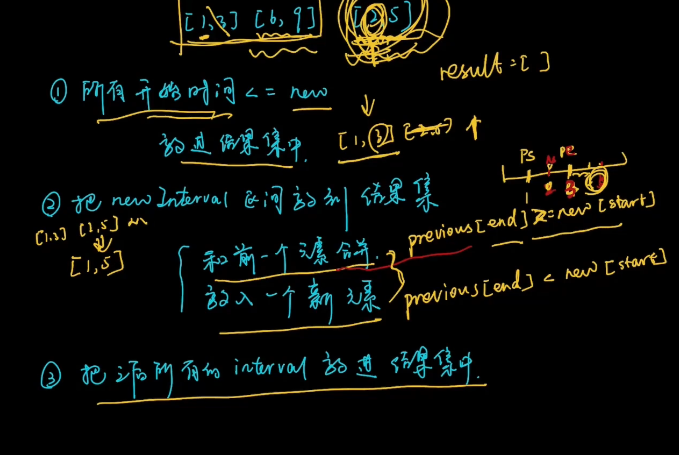 [1,3] [6,9] [2,5]
result=[ ]
① 所有开始时间 <= new
放进结果集中. [1,3]
PS PE
② 把 newInterval 区间放到结果集
[1,3] [2,5]
[1,5]
和前一个元素合并. previous[end] >=new[start]
放入一个新元素 previous[end] < new[start]
③ 把之后所有的 interval 放进结果集中.